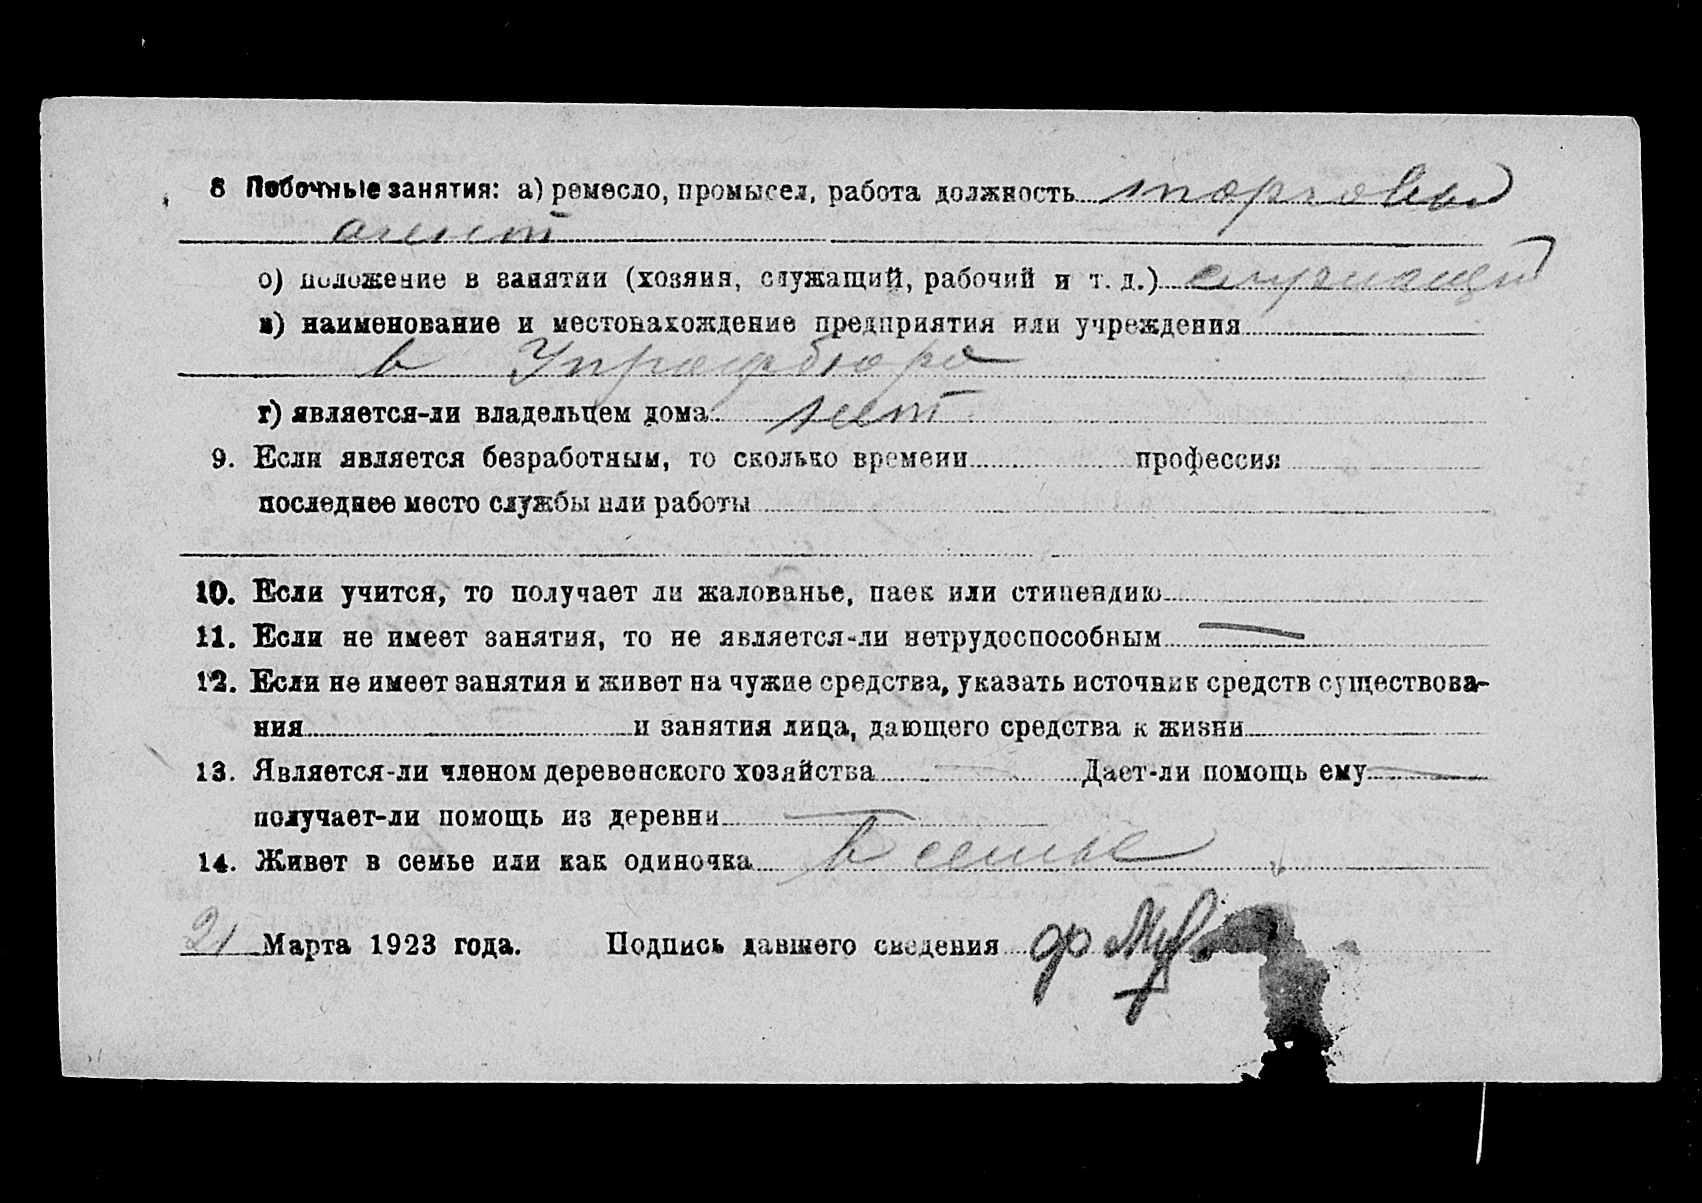 8 Побочные занятия: а) ремесло, промысел, работа должность торговый
агент
б) положение в занятии (хозяин, служащий, рабочий и т. д.) служащий
в) наименование и местонахождение предприятия или учреждения
в Упрофбюро
г) является-ли владельцем дома нет
9. Если является безработным, то сколько времени профессия
последнее место службы или работы
10. Если учится, то получает ли жалованье, паек или стипендию
11. Если не имеет занятия, то не является-ли нетрудоспособным —
12. Если не имеет занятия и живет на чужие средства, указать источник средств существова-
ния и занятия лица, дающего средства к жизни
13. Является-ли членом деревенского хозяйства — Дает-ли помощь ему —
получает-ли помощь из деревни —
14. Живет в семье или как одиночка в семье
21 Марта 1923 года. Подпись давшего сведения